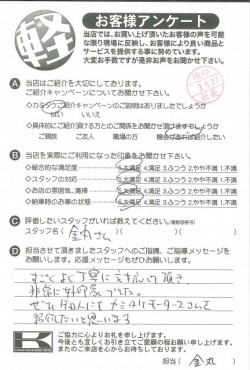 軽
お客様アンケート
当店では、お買い上げ頂いたお客様の声を可能
な限り現場に反映し、お客様により良い商品と
サービスを提供する事に努めています。
大変お手数ですが是非お声をお聞かせ下さい。
A 当店はご紹介を大切にしてあります。
ご紹介キャンペーンについてお聞かせ下さい
◇カミタケご紹介キャンペーンのご説明はありましたでしょうか
はい いいえ
◇具体的にご紹介頂ける方とのご関係をお聞かせ頂けますでしょうか
ご親族 ご友人 職場の方 機会があれば紹介したい
B 当店を実際にご利用になった印象をお聞かせ下さい。
◇総合的な満足度 5.大満足 4.満足 3.ふつう 2.やや不満 1.不満
◇スタッフの対応 5.大満足 4.満足 3.ふつう 2.やや不満 1.不満
◇お店の雰囲気、清掃 5.大満足 4.満足 3.ふつう 2.やや不満 1.不満
◇納車時のお車の状態 5.大満足 4.満足 3.ふつう 2.やや不満 1.不満
C 評価したいスタッフがいれば教えてください。(複数回答可)
スタッフ名( 金丸さん )
D 担当させて頂きましたスタッフへのご指摘、ご指導メッセージを
お願いします。応援メッセージもぜひお願いします。
すごくよく丁寧に対応頂き、
非常に好印象でした。
ぜひ知人にもカミタケモータースさんを
紹介したいと思います
K
ご協力に心よりお礼を申し上げます。
今後とも宜しくお引き立てご愛顧の程お願い申し上げます。
またのご来店を心からお待ちしております。
担当( 金丸 )